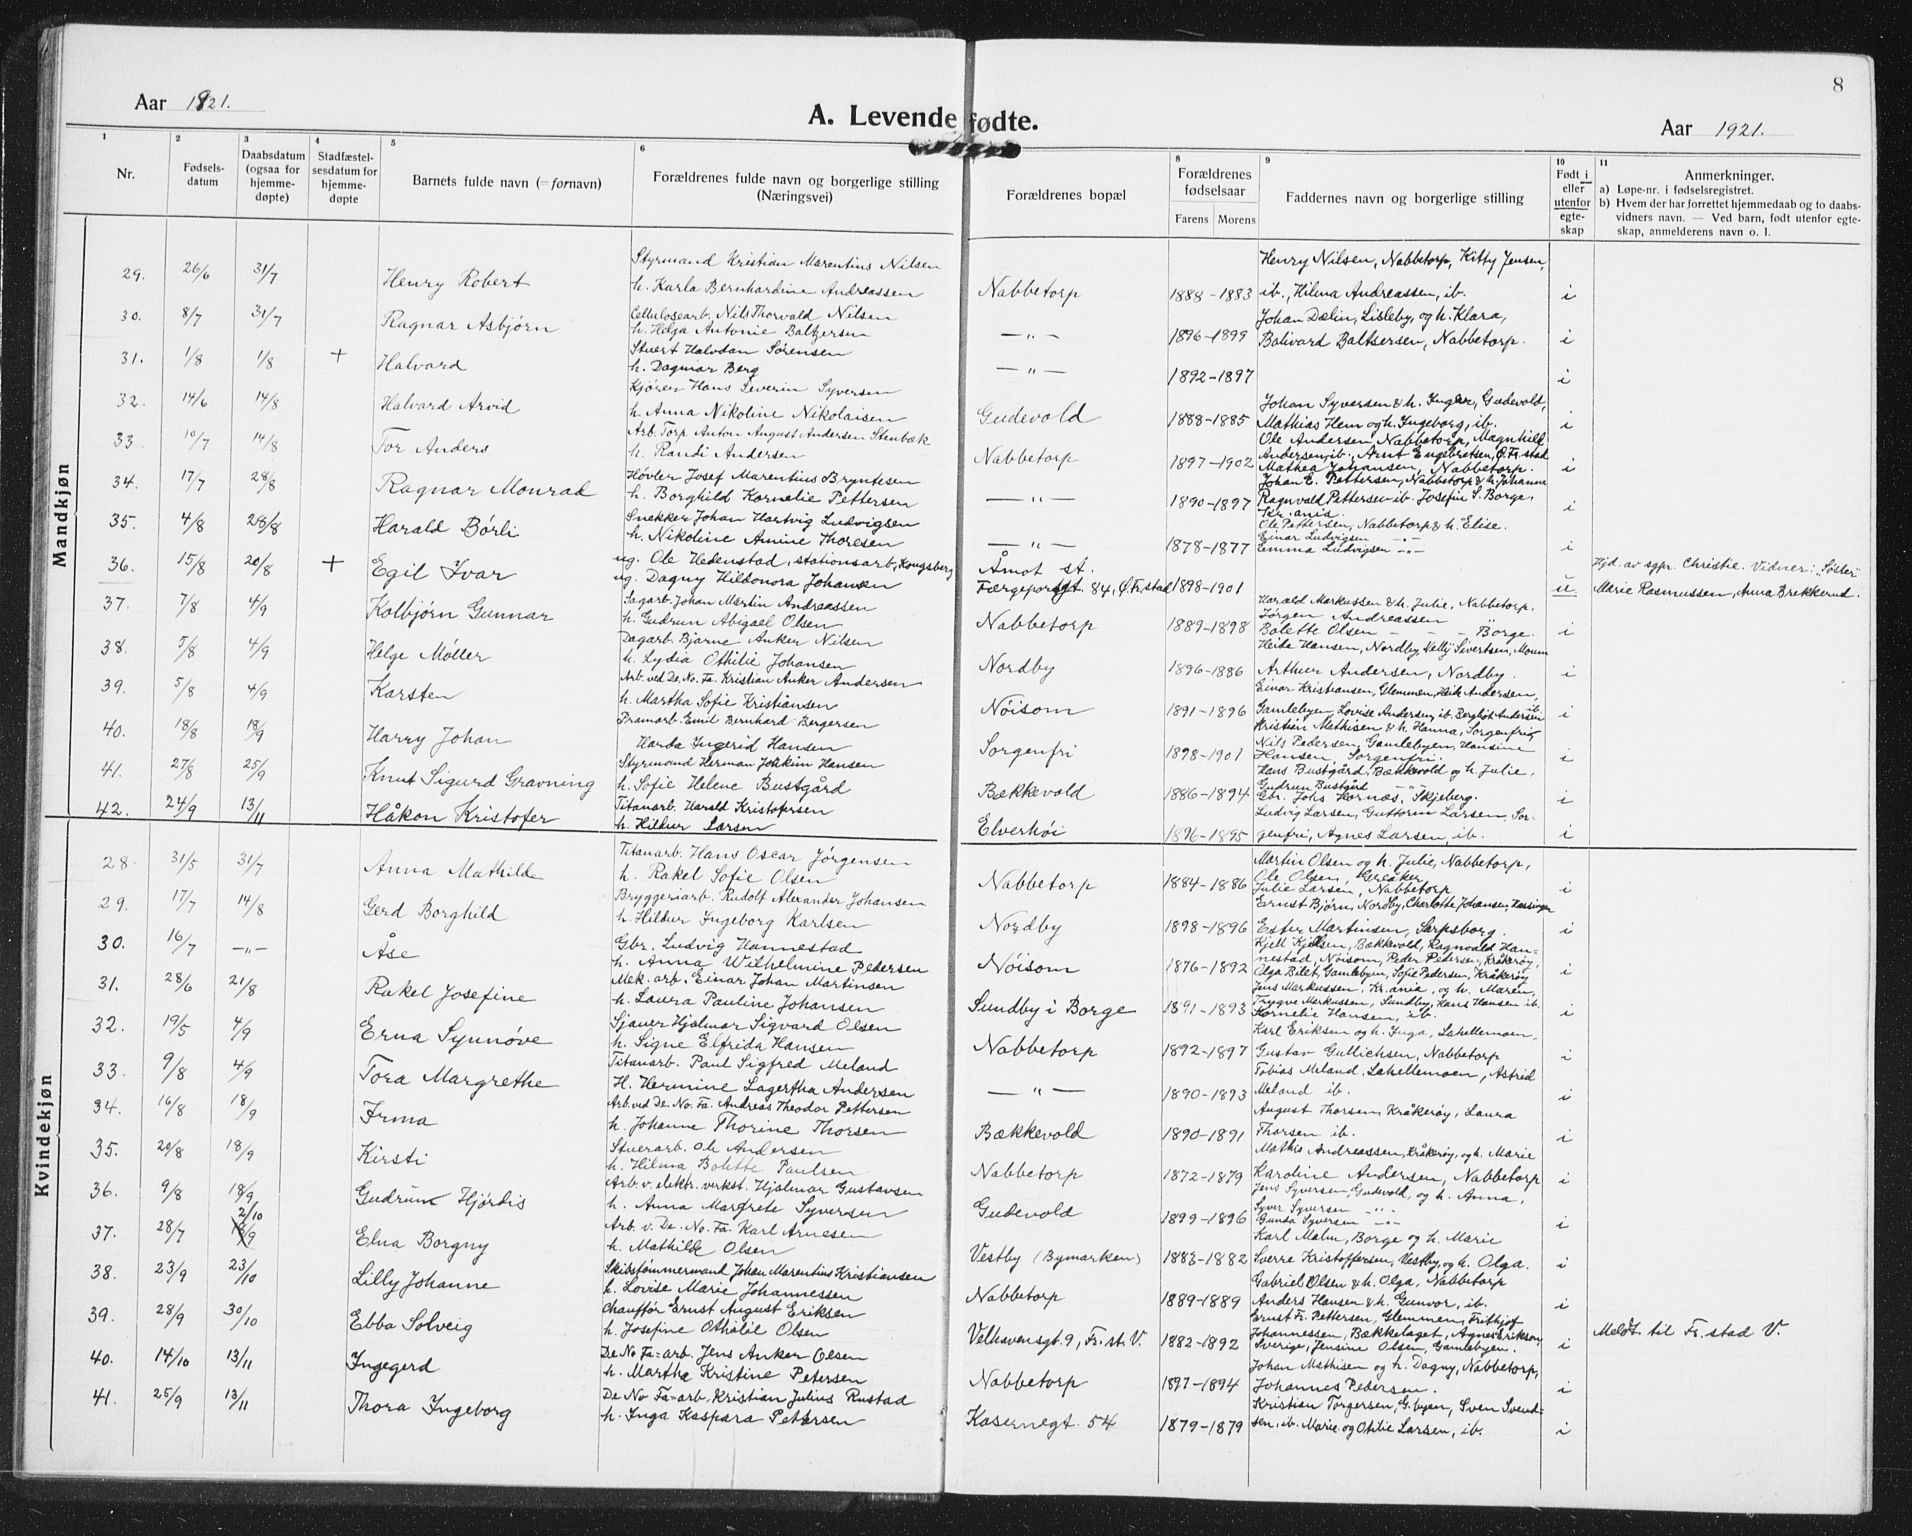 8
Aar 1921.
A. Levende fødte.
Aar 1921.
1 2 3 4 5 6 8 9 10 11
Nr.
Fødsels-
datum
Daabsdatum
(ogsaa for
hjemme-
døpte)
Stadfæstel-
sesdatum for
hjemme-
døpte
Barnets fulde navn (= fornavn)
Forældrenes fulde navn og borgerlige stilling
(Næringsvei)
Forældrenes bopæl
Forældrenes
fødselsaar
Farens Morens
Faddernes navn og borgerlige stilling
Født i
eller
utenfor
egte-
skap
Anmerkninger.
a) Løpe-nr. i fødselsregistret.
b) Hvem der har forrettet hjemmedaab og to daabs-
vidners navn. — Ved barn, født utenfor egte-
skap, anmelderens navn o. l.
Mandkjøn
Styrmand Kristian Marentius Nilsen Henry Nilsen, Nabbetorp, Kitty Jensen,
29. 26/6 31/7 Henry Robert h. Karla Bernhardine Andreassen Nabbetorp 1888-1883 ib., Hilma Andreassen, ib. i
Cellulosearb. Nils Thorvald Nilsen Johan Dælin, Lisleby, og h. Klara,
30. 8/7 31/7 Ragnar Asbjørn h. Helga Antonie Baltzersen — " — 1896-1899 Bolivard Baltsersen, Nabbetorp. i
Stuert Halvdan Sørensen
31. 1/8 1/8 + Halvard h. Dagmar Berg — " — 1892-1897 i
Kjører Hans Severin Syversen Johan Syversen & h. Inger, Gudevold,
32. 14/6 14/8 Halvard Arvid h. Anna Nikoline Nikolaisen Gudevold 1888-1885 Mathias Hem og h. Ingeborg, ib. i
Arb. Torp Anton August Andersen Stenbæk Ole Andersen, Nabbetorp, Magnhild
33. 10/7 14/8 Tor Anders h. Randi Andersen Nabbetorp 1897-1902 Andersen, ib., Arnt Engebretsen, Ø. Fr.stad
Mathea Johansen, Nabbetorp. i
Høvler Josef Marentius Bryntesen Johan E. Pettersen, Nabbetorp & h. Johanne
34. 17/7 28/8 Ragnar Monrad h. Borghild Kornelie Pettersen — " — 1890-1897 Ragnvald Pettersen ib. Josefin S. Borge,
Kr.ania. i
Snekker Johan Hartvig Ludvigsen Ole Pettersen, Nabbetorp & h. Elise.
35. 4/8 28/8 Harald Børli h. Nikoline Amine Thoresen — " — 1878-1877 Einar Ludvigsen -"-
Emma Ludvigsen -"- i
ug. Ole Hedenstad, stationsarb, Kongsberg Åmot st. Hjd. av sgpr. Christie. Vidner: "Søster"
36. 15/8 20/8 + Egil Ivar ug. Dagny Hildonora Johansen Færgeportgt. 84, Ø. Fr.stad 1898-1901 u. Marie Rasmussen, Anna Brekkerud.
Sagarb. Johan Martin Andreassen Harald Markussen & h. Julie, Nabbetorp,
37. 7/8 4/9 Kolbjørn Gunnar h. Gudrun Abigael Olsen Nabbetorp 1889-1898 Jørgen Andreassen
Bolette Olsen - - - Borge. i
Dagarb. Bjarne Anker Nilsen Heide Hansen, Nordby, Nelly Sivertsen, Moum
38. 5/8 4/9 Helge Møller h. Lydia Othilie Johansen Nordby 1896-1886 Arthur Andersen, Nordby. i
Arb. ved De. No. Fa. Kristian Anker Andersen Einar Kristiansen, Glemmen, Heik Andersen,
39. 5/8 4/9 Karsten h. Martha Sofie Kristiansen Nöisom 1891-1896 Gamlebyen, Lovise Andersen, ib. Bergliot Andersen ib. i
Pramarb. Emil Bernhard Bergersen Kristian Mathisen & h. Hanna, Sorgenfrig
40. 18/8 18/9 Harry Johan Harda Ingerid Hansen Sorgenfri 1898-1901 Nils Pedersen, Gamlebyen, Hansine
Hansen Sorgenfri. i
Styrmand Herman Joakim Hansen Hans Bustgård, Bækkevold og h. Julie,
41. 27/8 25/9 Knut Sigurd Gravning h. Sofie Helene Bustgård Bækkevold 1886-1894 Gudrun Bustgård -"-
Gbr. Johs Hornæs, Skjeberg. i
Titanarb. Harald Kristofersen Ludvig Larsen, Guttorm Larsen, Sor-
42. 24/9 13/11 Håkon Kristofer h. Hildur Larsen Elverhöi 1896-1895 genfri, Agnes Larsen, ib. i
Kvindekjøn
Titanarb. Hans Oscar Jørgensen Martin Olsen og h. Julie, Nabbetorp,
28. 31/5 31/7 Anna Mathilde h. Rakel Sofie Olsen Nabbetorp 1884-1886 Ole Olsen, Greåker
Julie Larsen, Nabbetorp i
Bryggeriarb. Rudolf Alexander Johansen Ernst Bjørn, Nordby, Charlotte Johansen,
29. 17/7 14/8 Gerd Borghild h. Hildur Ingeborg Karlsen Nordby 1898-1896 Ester Martinsen, Sarpsborg. i
Gbr. Ludvig Hannestad Kjell Kjølsen, Bækkevold, Ragnvald Han-
30. 16/7 —"— Åse h. Anna Wilhelmine Pedersen Nöisom 1876-1892 nestad, Nöisom, Peder Pedersen, Kråkerøy,
Olga Bilet, Gamlebyen, Sofie Pedersen, Kråkerøy i
Mek. arb. Einar Johan Martinsen Jens Markussen, Kr.ania, og h. Maren,
31. 28/6 21/8 Rakel Josefine h. Laura Pauline Johansen Sundby i Borge 1891-1893 Trygve Markussen, Sundby, Hans Hansen ib.
Kornelie Hansen, ib. i
Sjauer Hjalmar Sigvard Olsen Karl Eriksen og h. Inga, Lahellemoen,
32. 19/5 4/9 Erna Synnöve h. Signe Elfrida Hansen Nabbetorp 1892-1897 Gustav Gullichsen, Nabbetorp i
Titanarb. Paul Sigfred Meland Tobias Meland, Lahellemoen, Astrid
33. 9/8 4/9 Tora Margrethe H. Hermine Lagertha Andersen — " — 1890-1893 Meland ib. i
Arb. ved De. No. Fa. Andreas Theodor Pettersen August Thorsen, Kråkerøy, Laura
34. 16/8 18/9 Irma h. Johanne Thorine Thorsen Bækkevold 1890-1891 Thorsen ib. i
Stuerarb. Ole Andersen Mathis Andreassen, Kråkerøy, og h. Marie
35. 20/8 18/9 Kirsti h. Hilma Bolette Paulsen Nabbetorp 1872-1879 Karoline Andersen, Nabbetorp i
Arb. v. elektr. verkst. Hjalmar Gustavsen Jens Syversen, Gudevold, og h. Anna,
36. 9/8 18/9 Gudrun Hjördis h. Anna Margrete Syversen Gudevold 1899-1896 Syver Syversen -"-
Gunda Syversen -"- i
2/10 Arb. v. De. No. Fa. Karl Arnesen Karl Malm, Borge og h. Marie
37. 28/7 18/9 Elna Borgny h. Mathilde Olsen Vestby (Bymarken) 1883-1882 Sverre Kristoffersen, Vestby, og h. Olga. i
Skibstømmermand Johan Marentius Kristiansen Gabriel Olsen & h. Olga, Nabbetorp
38. 23/9 23/10 Lilly Johanne h. Lovise Marie Johannessen Nabbetorp 1889-1889 Anders Hansen & h. Gunvor, ib. i
Chauffør Ernst August Eriksen Ernst Fr. Pettersen, Glemmen, Frithjof
39. 28/9 30/10 Ebba Solveig h. Josefine Othilie Olsen Velhavensgt. 9, Fr. st. V. 1882-1892 Johannessen, Bækkelaget, Agnes Erikson,
Sverige, Jensine Olsen, Gamlebyen. i Meldt til Fr. stad V.
De No Fa=arb. Jens Anker Olsen Johan Mathisen og h. Dagny, Nabbetorp,
40. 14/10 13/11 Ingegerd h. Martha Kristine Petersen Nabbetorp 1897-1894 Johannes Pedersen. i
De No Fa=arb. Kristian Julius Rustad Kristian Torgersen, G. byen, Sven Svend-
41. 25/9 13/11 Thora Ingeborg h. Inga Kaspara Pettersen Kasernegt. 54 1879-1879 sen, ib. Marie og Otilie Larsen, ib. i